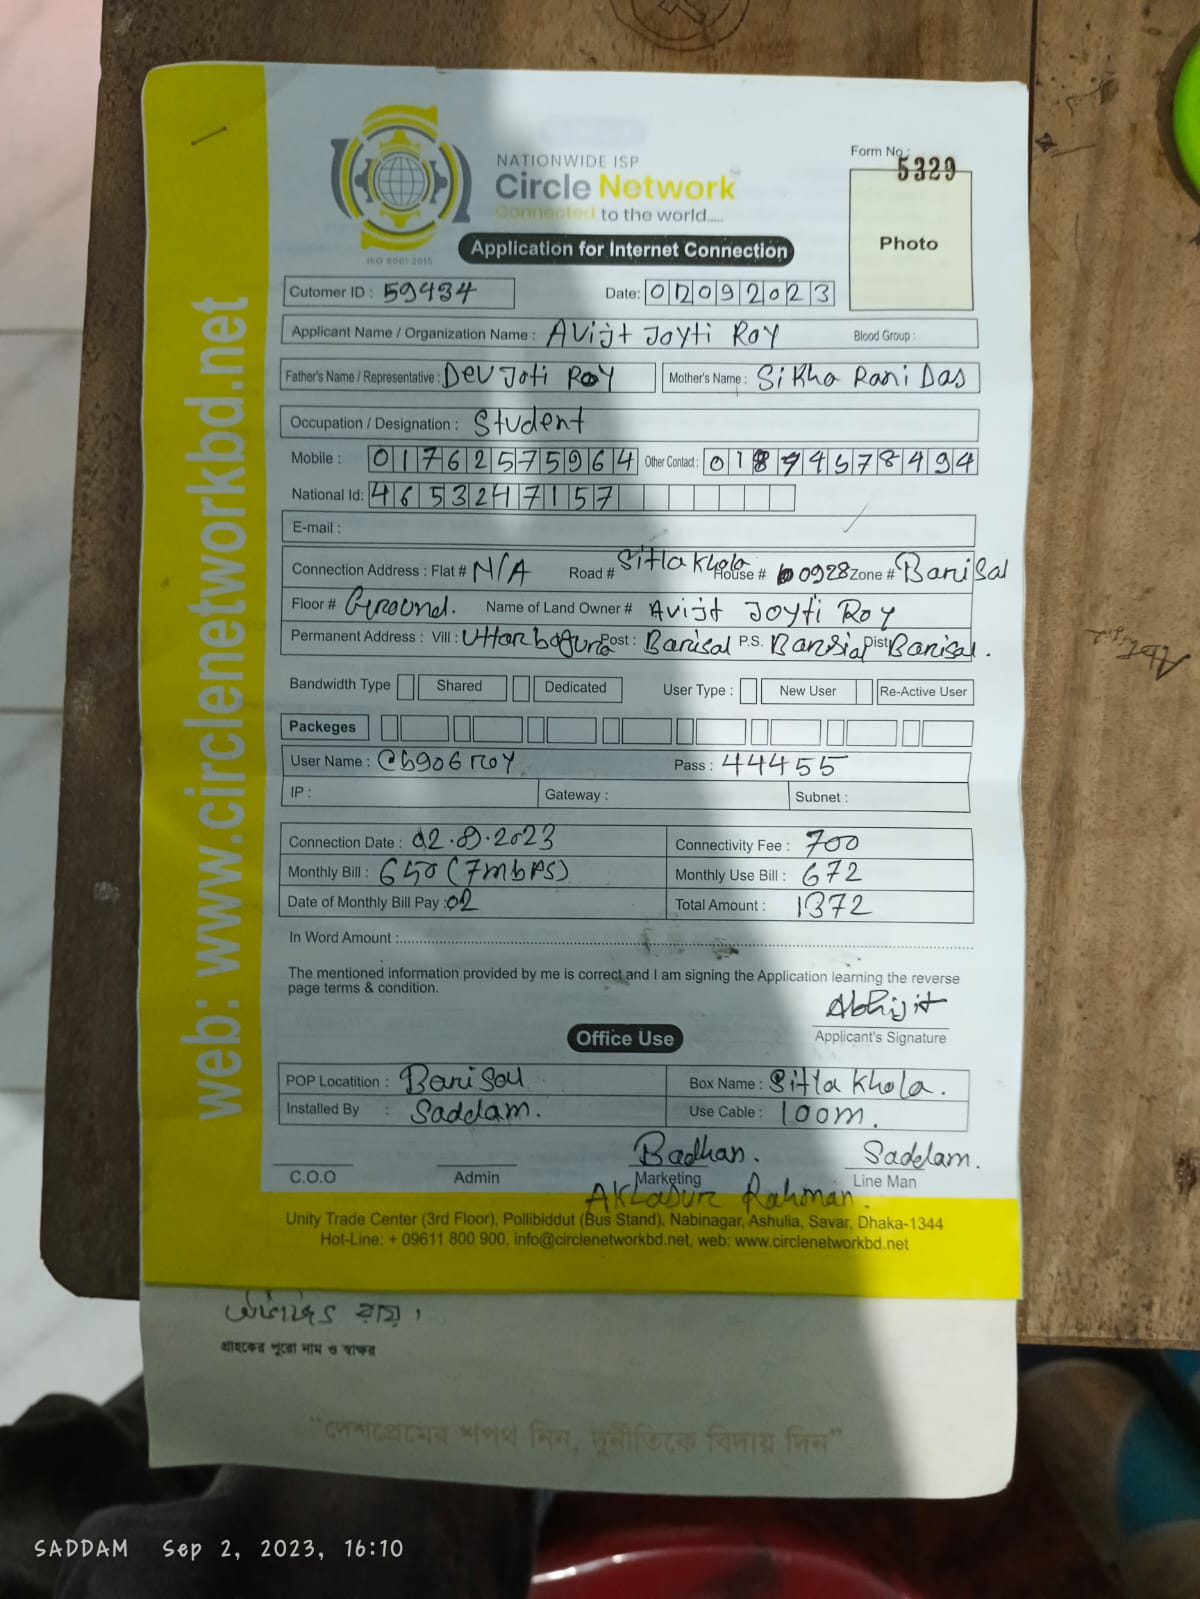 NATIONWIDE ISP
Circle Network
Connected to the world.....
ISO 9001:2015
Form No.: 5329
Photo
Application for Internet Connection
Cutomer ID : 59434 Date: 02092023
Applicant Name / Organization Name : Avijt Joyti Roy Blood Group :
Father's Name / Representative : Dev Joti Roy Mother's Name : Sikha Rani Das
Occupation / Designation : Student
Mobile : 01762575964 Other Contact : 01894578494
National Id: 4653247157
E-mail :
Connection Address : Flat # N/A Road # Sitla Khola House # 0928 Zone # Barisal
Floor # Ground. Name of Land Owner # Avijt Joyti Roy
Permanent Address : Vill : Uttar bogura Post : Barisal P.S. Barsial Dist Barisal.
Bandwidth Type Shared Dedicated User Type : New User Re-Active User
Packeges
User Name : Cb906roy Pass : 44455
IP : Gateway : Subnet :
Connection Date : 02.09.2023 Connectivity Fee : 700
Monthly Bill : 650 (7mbps) Monthly Use Bill : 672
Date of Monthly Bill Pay : 02 Total Amount : 1372
In Word Amount :
The mentioned information provided by me is correct and I am signing the Application learning the reverse
page terms & condition.
Abhijit
Applicant's Signature
Office Use
POP Locatition : Barisal Box Name : Sitla Khola.
Installed By : Saddam. Use Cable : 100m.
Badhan. Saddam.
C.O.O Admin Marketing Line Man
Rahman.
Unity Trade Center (3rd Floor), Pollibiddut (Bus Stand), Nabinagar, Ashulia, Savar, Dhaka-1344
Hot-Line: + 09611 800 900, info@circlenetworkbd.net, web: www.circlenetworkbd.net
web: www.circlenetworkbd.net
রায়।
গ্রাহকের পুরো নাম ও স্বাক্ষর
"দেশপ্রেমের শপথ নিন, দুর্নীতিকে বিদায় দিন"
SADDAM Sep 2, 2023, 16:10